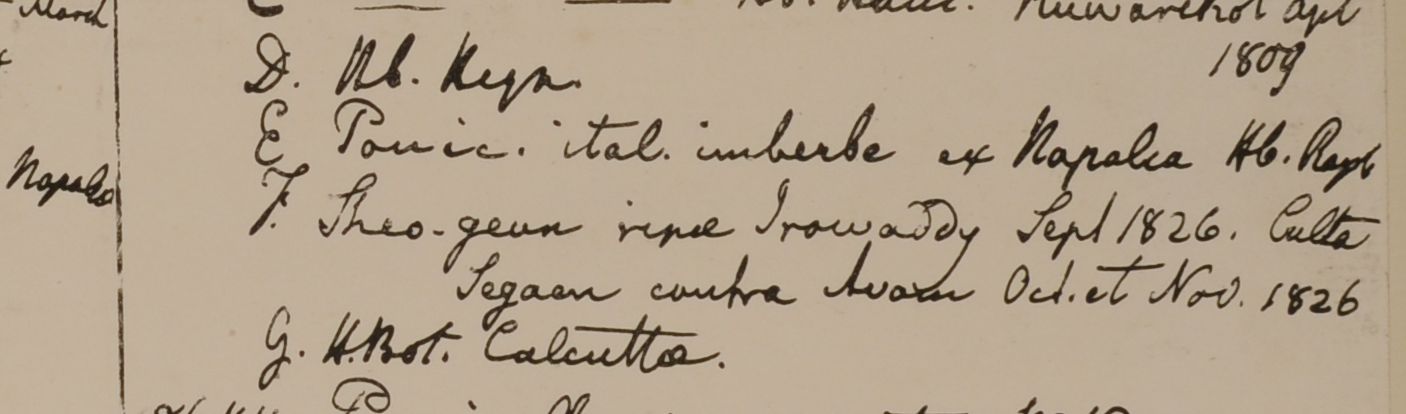 March
C Hb. Ham. Nuwarekot Apl
1809
D. Hb. Heyn.
E Panic. ital. imberbe ex Napalia Hb. Roxb
Napalia
F. Sheo-geun ripæ Irawaddy Sept 1826. Culta
Segaen contra Avam Oct. et Nov. 1826
G. H. Bot. Calcutta.